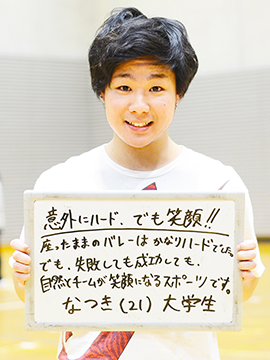 意外にハード、でも笑顔!!
座ったままのバレーはかなりハードでした。
でも、失敗しても成功しても、
自然とチームが笑顔になるスポーツです。
なつき(21)大学生